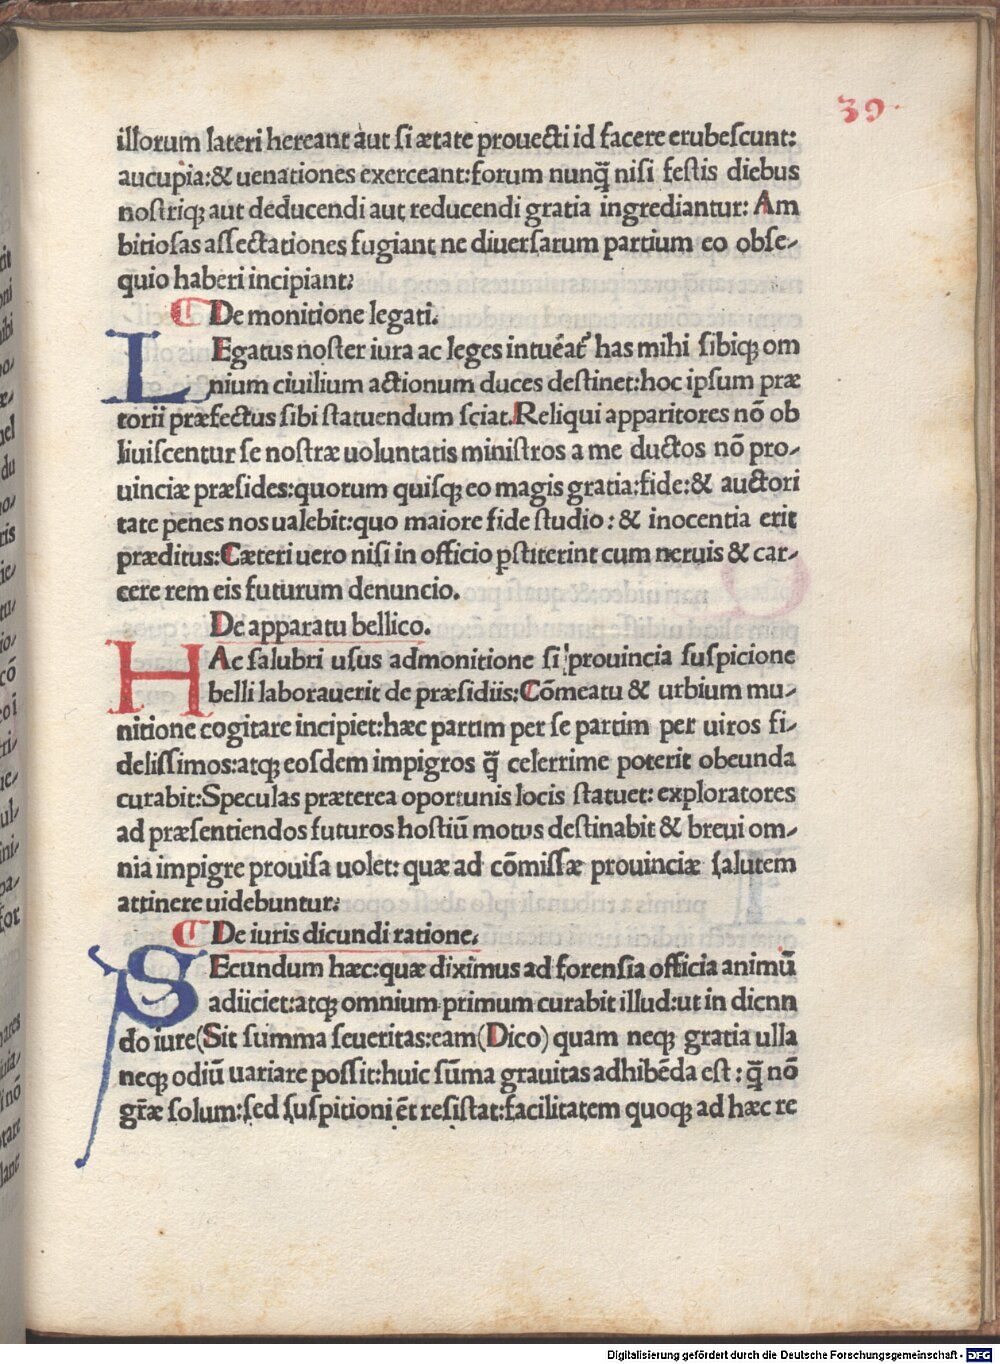 39.
illorum lateri hereant aut si ætate prouecti id facere erubescunt:
aucupia:& uenationes exerceant:forum nunq̃ nisi festis diebus
nostriqꝫ aut deducendi aut reducendi gratia ingrediantur: Am
bitiosas assectationes fugiant ne diuersarum partium eo obse-
quio haberi incipiant:
De monitione legati.
LEgatus noster iura ac leges intuēat᷑ has mihi sibiqꝫ om
nium ciuilium actionum duces destinet:hoc ipsum præ
torii præfectus sibi statuendum sciat.Reliqui apparitores nō ob
liuiscentur se nostræ uoluntatis ministros a me ductos nō pro-
uinciæ præsides:quorum quisqꝫ eo magis gratia:fide:& auctori
tate penes nos ualebit:quo maiore fide studio:& inocentia erit
præditus:Cæteri uero nisi in officio pstiterint cum neruis & car-
cere rem eis futurum denuncio.
De apparatu bellico.
HAc salubri usus admonitione si prouincia suspicione
belli laborauerit de præsidiis:Cōmeatu & urbium mu-
nitione cogitare incipiet:hæc partim per se partim per uiros fi-
delissimos:atqꝫ eosdem impigros q̃ celerrime poterit obeunda
curabit:Speculas præterea oportunis locis statuet: exploratores
ad præsentiendos futuros hostiū motus destinabit & breui om-
nia impigre prouisa uolet: quæ ad cōmissæ prouinciæ salutem
attinere uidebuntur:
De iuris dicundi ratione.
SEcundum hæc:quæ diximus ad forensia officia animū
adiiciet:atqꝫ omnium primum curabit illud:ut in dicnn
do iure(Sit summa seueritas:eam(Dico) quam neqꝫ gratia ulla
neqꝫ odiū uariare possit:huic sūma grauitas adhibēda est:q̃ nō
gr̄æ solum:sed suspitioni ēt resistat:facilitatem quoqꝫ ad hæc re
Digitalisierung gefördert durch die Deutsche Forschungsgemeinschaft - DFG